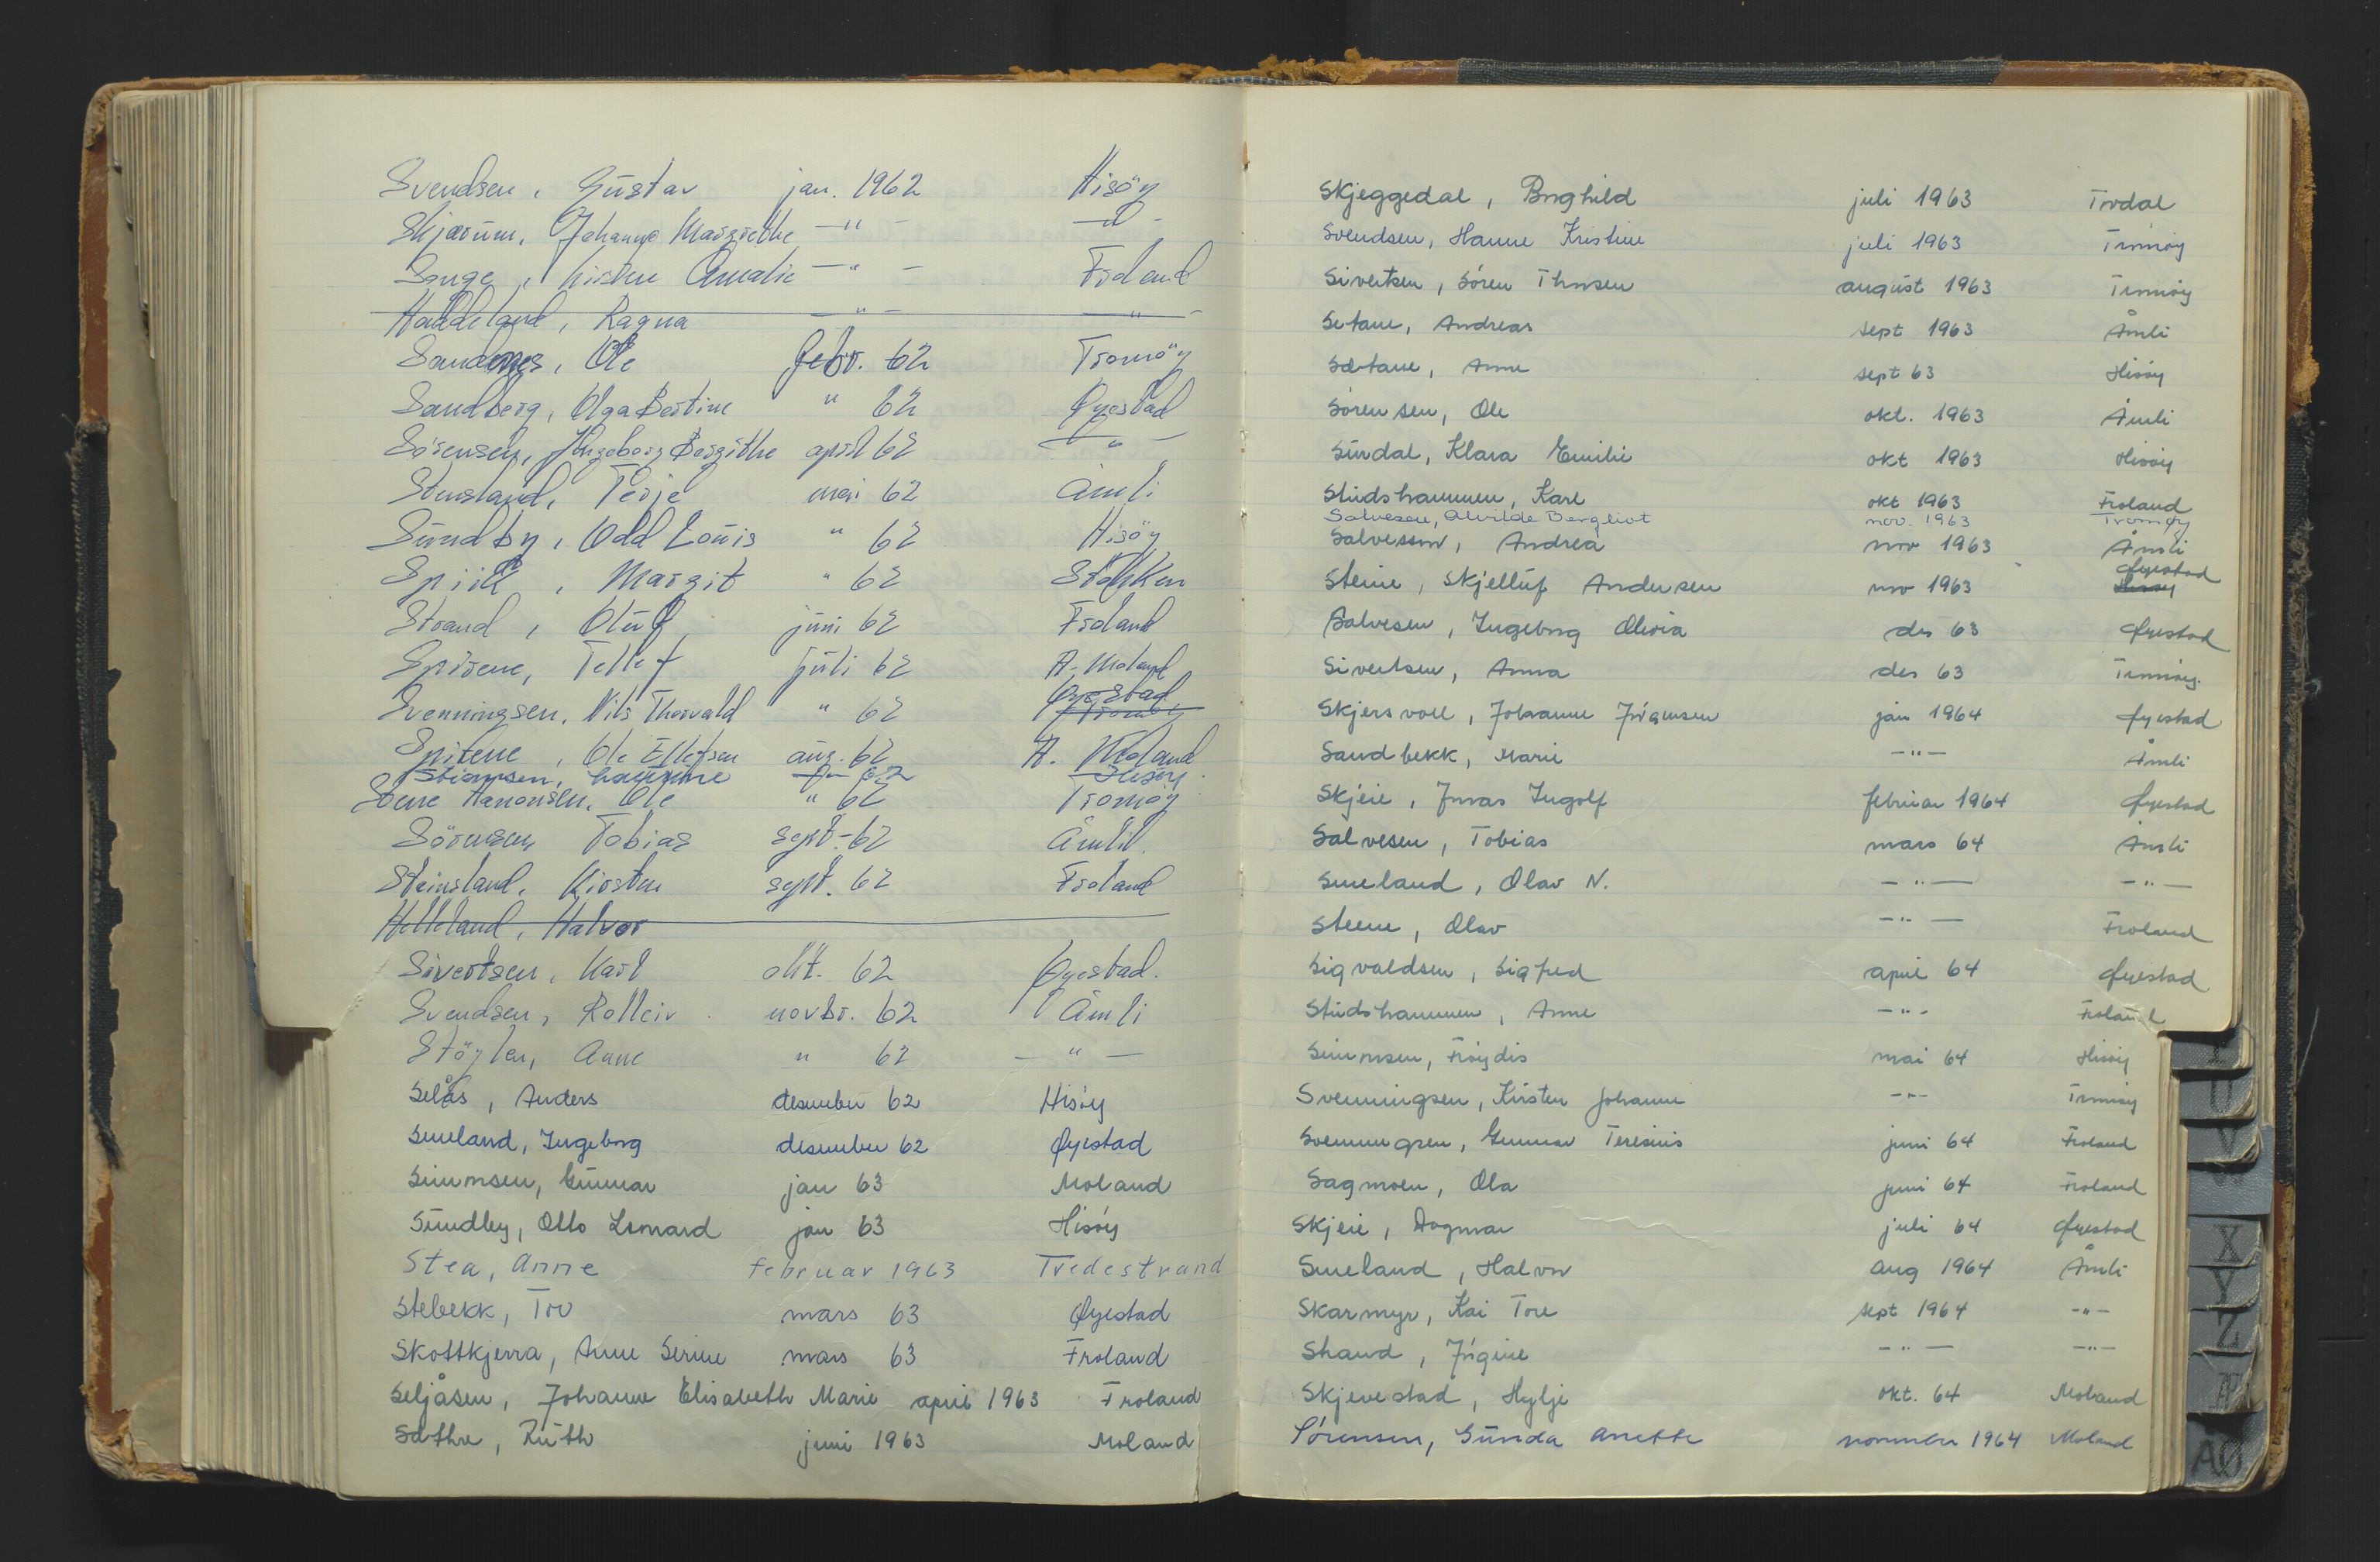 Svendsen, Gustav jan. 1962 Hisöy
Skjærum, Johanne Margrethe —"— —"—
Sange, Kirstine Amalie —"— Froland
Haddeland, Ragna —"— —"—
Sandnes, Ole febr. 62 Tromöy
Sandberg, Olga Bertine " 62 Öyestad
Sörensen, Ingeborg Bergithe april 62 —"—
Stensland, Terje mai 62 Åmli
Sundby, Odd Louis " 62 Hisöy
Margit " 62 Stokken
Strand, Oluf juni 62 Froland
Spirene, Tellef juli 62 A. Moland
Svenningsen, Nils Thorvald " 62 Öyestad Tromöy
Spirene, Ole Ellefsen aug. 62 A. Moland
Stiansen, 62 Hisøy
Ole " 62 Tromöy
Sörensen Tobias sept. 62 Åmli.
Steinsland, Kirsten sept. 62 Froland
Helleland, Halvor
Sivertsen, Karl okt. 62 Öyestad.
Svendsen, Rolleiv novbr. 62 Åmli
Stöylen, Anne " 62 —"—
Selås, Anders desember 62 Hisøy
Smeland, Ingeborg desember 62 Øyestad
Simonsen, Gunnar jan 63 Moland
Sundby, Otto Leonard jan 63 Hisøy
Stea, Anne februar 1963 Tvedestrand
Stebekk, Tov mars 63 Øyestad
Skottkjerra, Anne Serine mars 63 Froland
Seljåsen, Johanne Elisabeth Marie april 1963 Froland
Sæthre, Ruth juni 1963 Moland
Skjeggedal, Borghild juli 1963 Tovdal
Svendsen, Hanne Kristine juli 1963 Tromøy
Sivertsen, Søren Thorsen august 1963 Tromøy
Setane, Andreas sept 1963 Åmli
Sætane, Anne sept 63 Hisøy
Sørensen, Ole okt. 1963 Åmli
Sundal, Klara Emilie okt 1963 Hisøy
Studshammen, Karl okt 1963 Froland
Salvesen, Alvilde Bergliot nov. 1963 Tromøy
Salvesen, Andrea nov 1963 Åmli
Steine, Skjelluf Andersen nov 1963 Øyestad
Salvesen, Ingeborg Olivia des 63 Øyestad
Sivertsen, Anna des 63 Tromøy.
Skjersvoll, Johanne Jørgensen jan 1964 Øyestad
Sandbekk, Marie —"— Åmli
Skjeie, Jonas Ingolf februar 1964 Øyestad
Salvesen, Tobias mars 64 Åmli
Smeland, Olav N. —"— —"—
Steene, Olav —"— Froland
Sigvaldsen, Sigfred april 64 Øyestad
Studshammen, Anne —"— Froland
Simonsen, Frøydis mai 64 Hisøy
Svenningsen, Kirsten Johanne —"— Tromøy
Svenningsen, Gunnar Teresius juni 64 Froland
Sagmoen, Ola juni 64 Froland
Skjeie, Dagmar juli 64 Øyestad
Smeland, Halvor aug 1964 Åmli
Skarmyr, Kai Tore sept 1964 —"—
Strand, Jørgine —"— —"—
Skjevestad, Hylje okt. 64 Moland
Sørensen, Gunda Anette november 1964 Moland
U
V
X
Y
Z
Æ
ÅØ